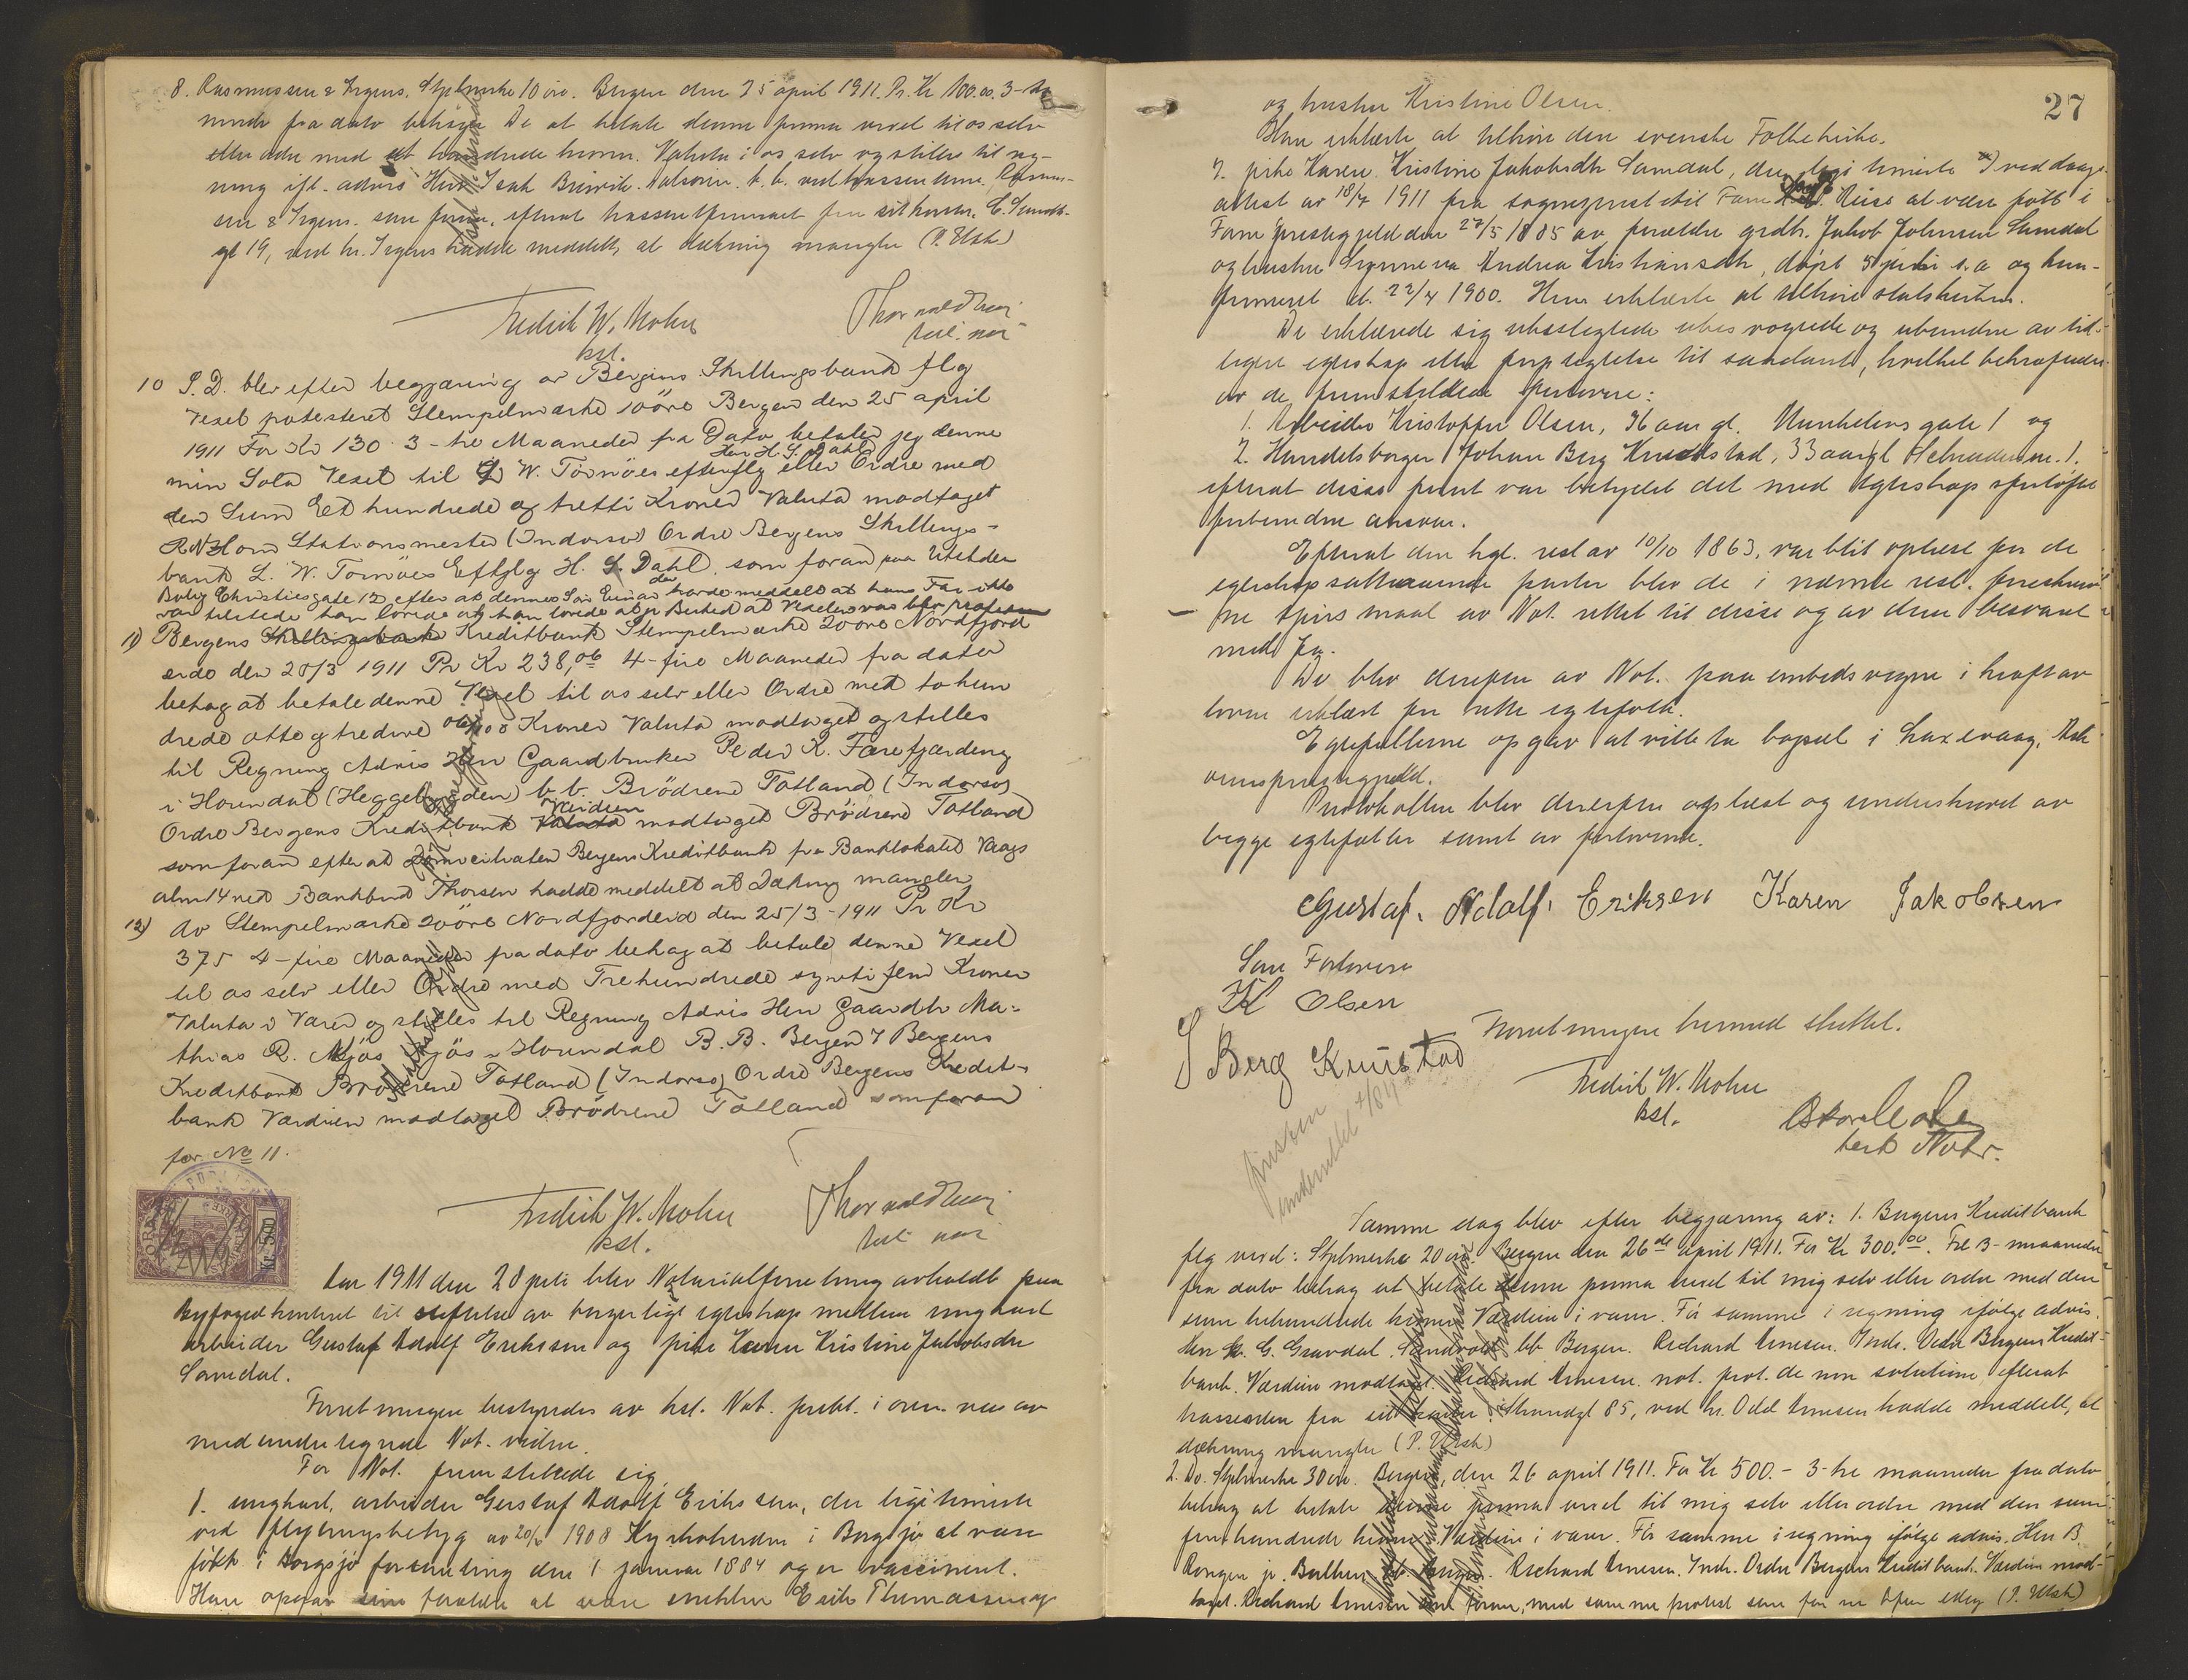 8. Rasmussen & Irgens. Stplmerke 10 öre. Bergen den 25 april 1911. Pr. Kr 100.00. 3-tre
mndr fra dato behager De at betale denne prima vexel til os selv
eller ordre med et hundrede kroner. Valuta i os selv og stilles til reg-
ning ifl. advis Herr Isak
sen & Irgens. som foran, efterat trassent firmaet fra sit kontor, C. Sundts-
gt 19, ved hr. Irgens hadde meddelt, at dækning mangler (P. Utsk)
Fredrik W. Mohn
kst.
10 S. D. blev efter begjæring av Bergens Skillingsbank flg
Vexel protesteret Stempelmærke 10 öre Bergen den 25 april
1911 For Kr 130. 3-tre Maaneder fra Dato betaler jeg denne
Herr H. S. Dahl
min Sola Vexel til L W. Tornöes efterflg eller Ordre med
den Sum Et hundrede og tretti Kroner Valuta modtaget
Stationsmester (Indorso) Ordre Bergens Skillings-
bank L. W. Tornöes Eftflg H. S. Dahl. som foran paa Utstder
Bolig Christiesgate 12 efter at dennes Sön Einar der havde meddelt at hans Far ikke
var tilstede han lovede at
11) Bergens Skillingsbank Kreditbank Stempelmerke 20 öre Nordfjord
eide den 25/3 1911 Pr Kr 238,06 4-fire Maaneder fra dato
behag at betale denne Vexel til os selv eller Ordre med to hun
drede otte og tredive 06/100 Kroner Valuta modtaget og stilles
til Regning Advis Herr Gaardbruker Peder K. Færefjærding
i Horindal (Heggebygden) b.b. Brödrene Totland (Indorso)
Værdien
Ordre Bergens Kreditbank Valuta modtaget Brödrene Totland
som foran efter at Domicilraten Bergens Kreditbank fra Banklokalet Vaags
alm 14 ved Bankbud Thorsen hadde meddelt at Dækning mangler
12) do Stempelmærke 20 öre Nordfjordeid den 25/3-1911 Pr Kr
375 4-fire Maaneder fra dato behag at betale denne Vexel
til os selv eller Ordre med Trehundrede syvti fem Kroner
Valuta i Varer og stilles til Regning Advis Herr Gaardbr Ma-
thias R. Mjös Mjös i Horindal B. B. Bergen & Bergens
Kreditbank Brödrene Totland (Indorso) Ordre Bergens Kredit-
bank Værdien modtaget Brödrene Totland som foran
for No 11.
Fredrik W. Mohn
kst.
Kr. 5.00
Aar 1911 den 28 juli blev Notarialforretning avholdt paa
Byfogedkontoret til stiftelse av borgerligt egteskap mellem ungkarl
arbeider Gustaf Adolf Eriksson og pike Karen Kristine Jakobsdtr
Samdal.
Forretningen bestyredes av kst. Not. publ. i overvær av
medundertegnede Not. vidne.
For Not. fremstillede sig
1. ungkarl, arbeider Gustaf Adolf Eriksson, der legitimerte
ved flyttningsbetyg av 20/ 1908 Kyrkoherden i Borgsjö at være
født i Borgsjö forsamling den 1 januar 1884 og er vaccineret.
Han opgav sine forældre at være snekker Erik Thomasson og
27
og hustru Kristine Olsen.
Han erklærte at tilhøre den svenske Folkekirke.
2. pike Karen Kristine Jakobsdtr Samdal, der legitimerte ved daaps-
attest av 18/7 1911 fra sogneprest til Fane Reise at være født i
Fane prestegjeld den 27/5 1885 av forældre grdbr. Jakob Johnsen Samdal
og hustru Synneva Andrea Kristiansdtr, døpt 5 juli s. a og kon-
firmeret d. 22/4 1900. Hun erklærte at tilhøre statskirken.
De erklærede sig ubeslegtede ubesvogrede og ubundne av tid-
ligere egteskap eller forpligtelse til saadant, hvilket bekræftedes
av de fremstillede forlovere:
1. Arbeider Kristoffer Olsen, 36 aar gl. Munkelivs gate 1 og
2. Handelsborger Johan Berg Knudstad, 33 aar gl
efterat disse først var betydet det med egteskaps forløfte
forbundne ansvar.
Efterat den kgl. resl av 10/10 1863, var blit oplæst for de
egteskapssøkende parter blev de i nævnte resl. foreskrev-
ne spørsmaal av Not. rettet til disse og av dem besvaret
med Ja.
De blev derefter av Not. paa embeds vegne i kraft av
loven erklært for rette egtefolk.
Egtefællerne opgav at ville ta bopæl i Laxevaag, Ask-
øens prestegjeld.
Protokollen blev derefter oplæst og underskrevet av
begge egtefæller samt av forloverne.
Gustaf. Adolf. Eriksen Karen Jakobsen
Som Forlovere
K Olsen
J Berg Knustad
Forretningen hermed sluttet.
Fredrik W. Mohn
kst.
Samme dag blev efter begjæring av: 1. Bergens Kreditbank
flg vexel: Stplmerke 20 öre. Bergen den 26de april 1911. For Kr 300.00. Tre 3-maaneder
fra dato behag at betale denne prima vexel til mig selv eller ordre med den
sum trehundrede kroner Værdien i varer. Før samme i regning ifølge advis.
Herr G. Gravdal. Sandvold bb Bergen. Richard Arnesen. Indr. Ordre Bergens Kredit-
bank. Værdien modtaget. Richard Arnesen. not. prot. de non solutione, efterat
trassenten fra sit kontor Strandgt 85, ved hr. Odd Arnesen hadde meddelt, at
dækning mangler (P. Utsk)
2. Do. Stplmerke 30 öre. Bergen, den 26 april 1911. For Kr 500.- 3-tre maaneder fra dato
behag at betale denne prima vexel til mig selv eller ordre med den sum
femhundrede kroner Værdien i varer. Før samme i regning ifølge advis. Herr B.
Rongen jr. Bulken bb. Bergen. Richard Arnesen. Indr. Ordre Bergens Kreditbank. Værdien mod-
taget. Richard Arnesen som foran, med samme protest som for nr 1 (P. Utsk)